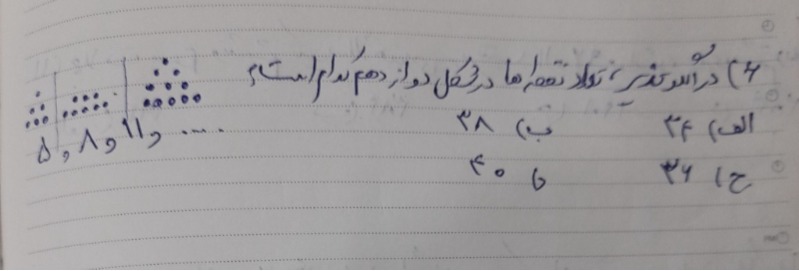 ۴) در الگو زیر، تعداد نقطه‌ها در شکل دوازدهم کدام است؟
۵ , ۸ , ۱۱ , ....
الف) ۳۴ ب) ۳۸
ج) ۳۶ د) ۴۰